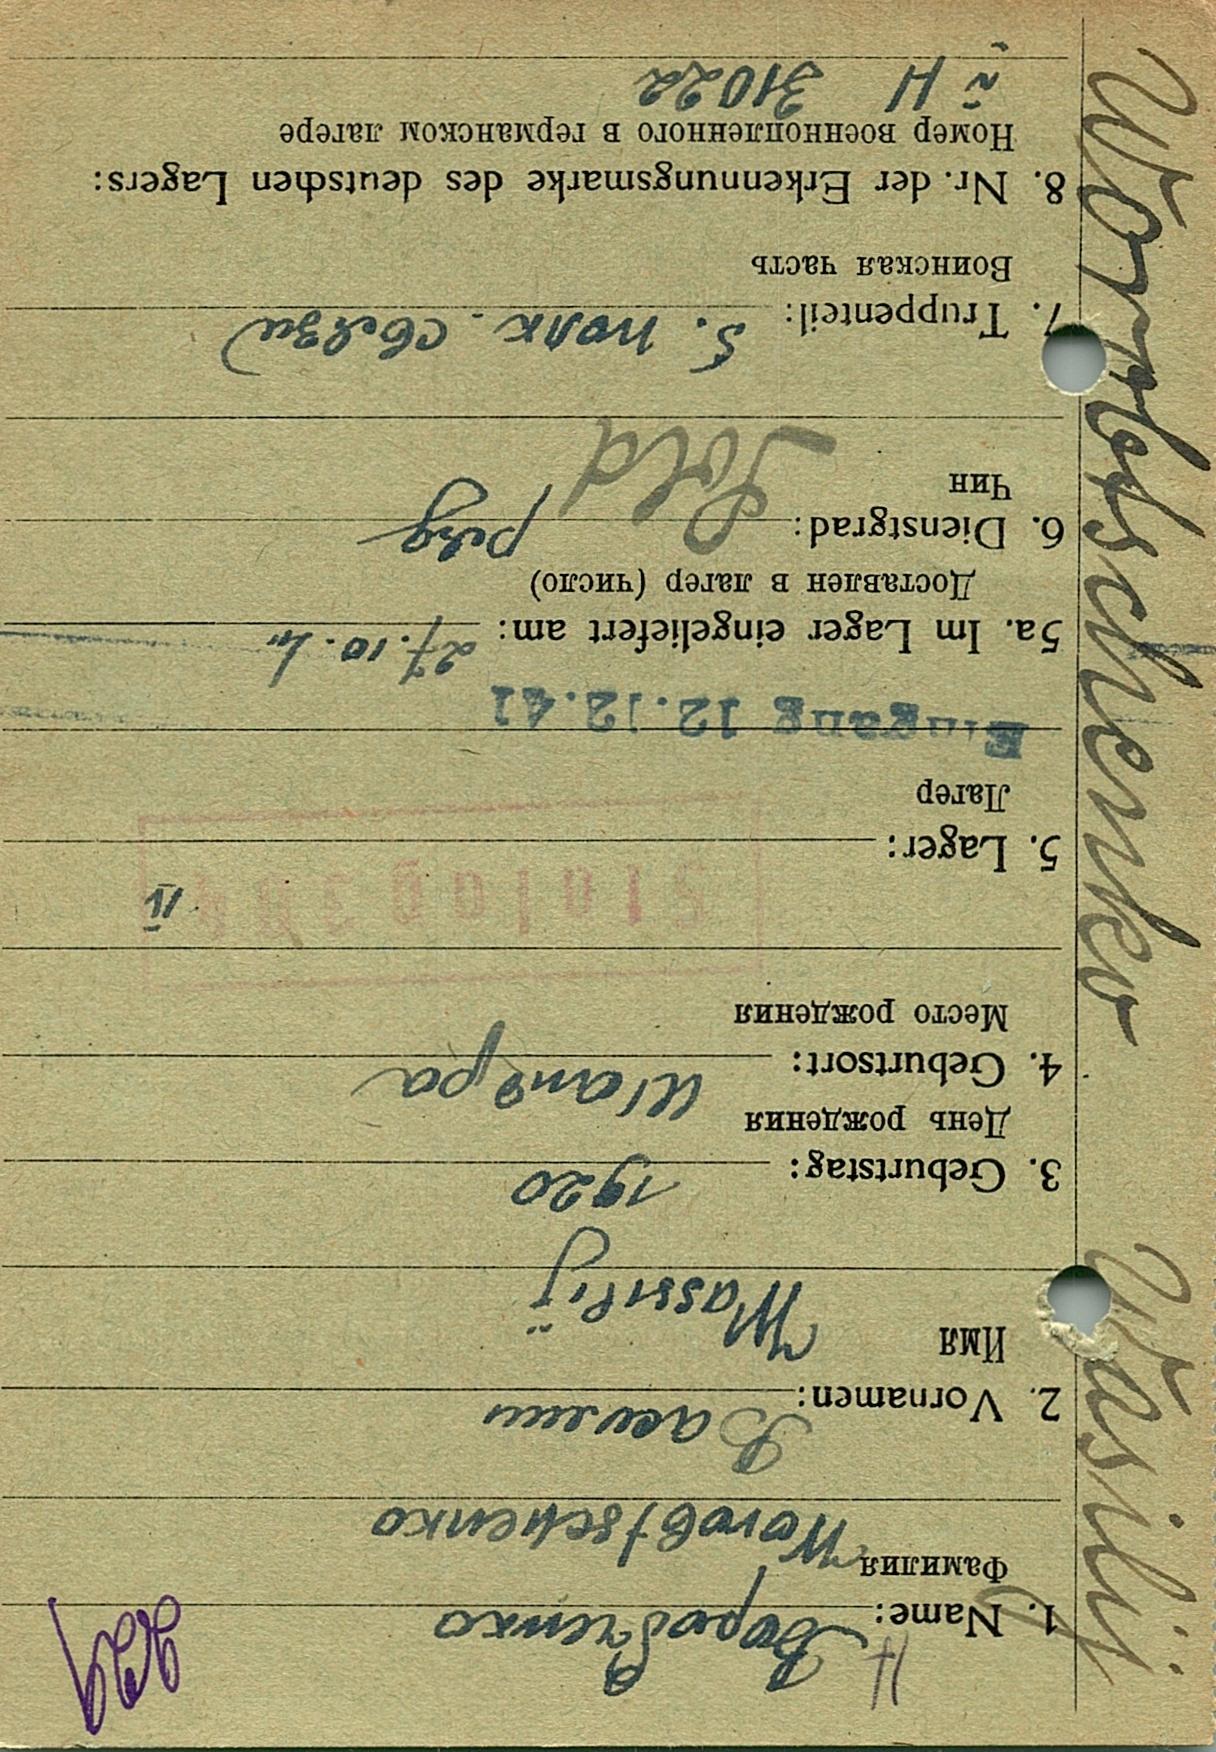 Worobschenko Wasilij
1. Name: Воробченко
Фамилия Worobtschenko
2. Vornamen: Василий
Имя Wassilij
3. Geburtstag: 1920
День рождения
4. Geburtsort:
Место рождения
IV
5. Lager:
Лагер
Eingang 12.12.41
5a. Im Lager eingeliefert am: 27.10.41
Доставлен в лагер (число)
6. Dienstgrad: Sold ряд
Чин
7. Truppenteil: 5. полк. связи
Воинская часть
8. Nr. der Erkennungsmarke des deutschen Lagers:
Номер военнопленного в германском лагере
IV H 31022